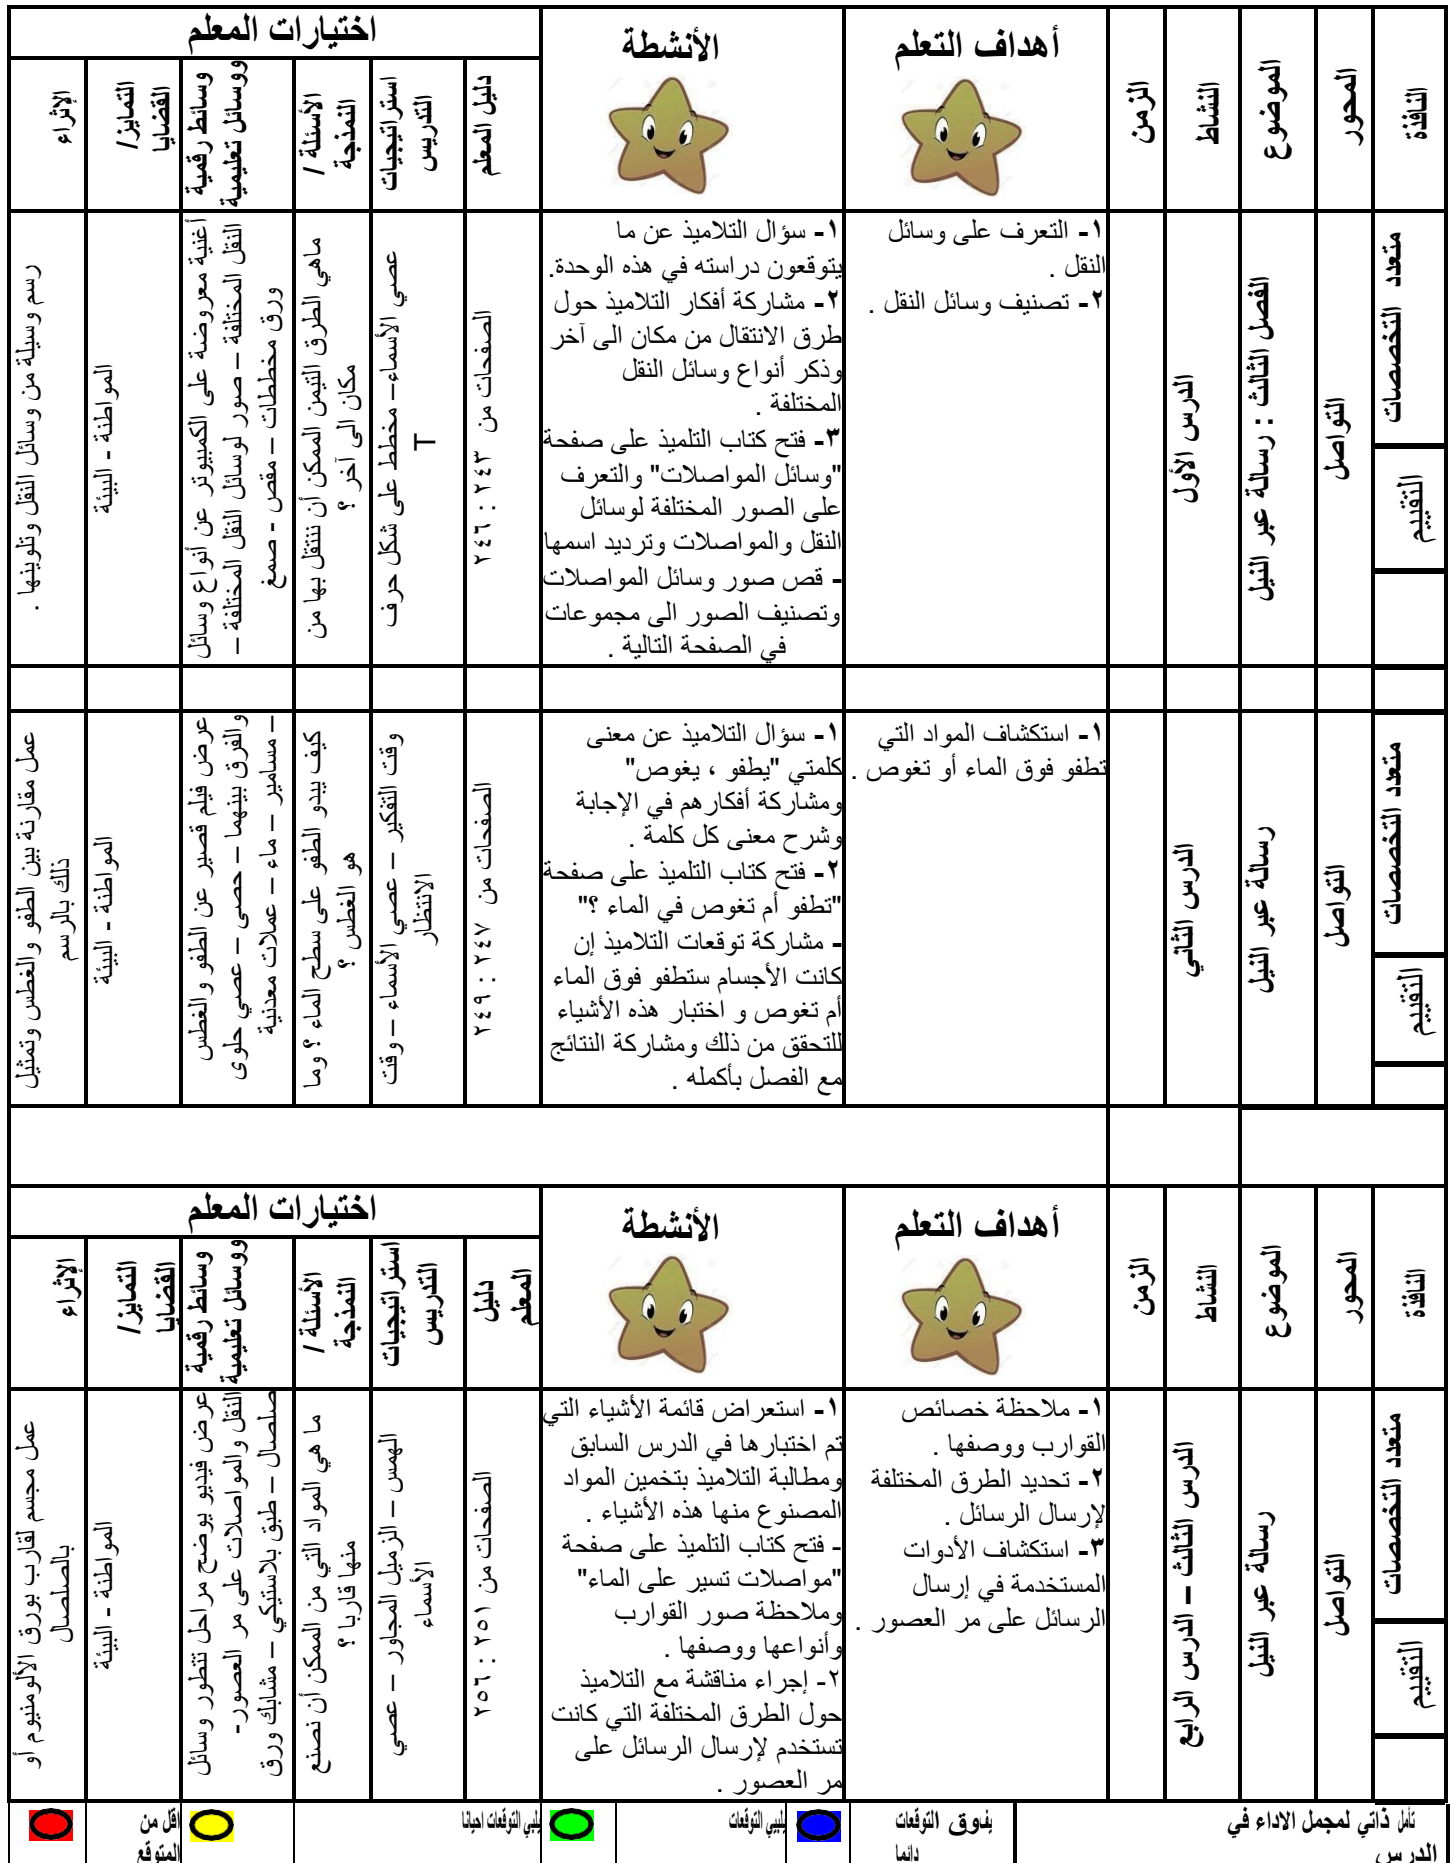 النافذة
المحور
الموضوع
النشاط
الزمن
أهداف التعلم
الأنشطة
اختيارات المعلم
دليل المعلم
استراتيجيات
التدريس
الأسئلة /
النمذجة
وسائط رقمية
ووسائل تعليمية
التمايز/
القضايا
الإثراء
متعدد التخصصات
التقييم
التواصل
الفصل الثالث : رسالة عبر النيل
الدرس الأول
١- التعرف على وسائل
النقل .
٢- تصنيف وسائل النقل .
١- سؤال التلاميذ عن ما
يتوقعون دراسته في هذه الوحدة.
٢- مشاركة أفكار التلاميذ حول
طرق الانتقال من مكان الى آخر
وذكر أنواع وسائل النقل
المختلفة .
٣- فتح كتاب التلميذ على صفحة
"وسائل المواصلات" والتعرف
على الصور المختلفة لوسائل
النقل والمواصلات وترديد اسمها
- قص صور وسائل المواصلات
وتصنيف الصور الى مجموعات
في الصفحة التالية .
الصفحات من ٢٤٣ : ٢٤٦
عصي الأسماء– مخطط على شكل حرف
T
ماهي الطرق التيمن الممكن أن ننتقل بها من
مكان الى آخر ؟
أغنية معروضة على الكمبيوتر عن أنواع وسائل
النقل المختلفة – صور لوسائل النقل المختلفة –
ورق مخططات – مقص - صمغ
المواطنة - البيئة
رسم وسيلة من وسائل النقل وتلوينها .
متعدد التخصصات
التقييم
التواصل
رسالة عبر النيل
الدرس الثاني
١- استكشاف المواد التي
تطفو فوق الماء أو تغوص .
١- سؤال التلاميذ عن معنى
كلمتي "يطفو ، يغوص"
ومشاركة أفكارهم في الإجابة
وشرح معنى كل كلمة .
٢- فتح كتاب التلميذ على صفحة
"تطفو أم تغوص في الماء ؟"
- مشاركة توقعات التلاميذ إن
كانت الأجسام ستطفو فوق الماء
أم تغوص و اختبار هذه الأشياء
للتحقق من ذلك ومشاركة النتائج
مع الفصل بأكمله .
الصفحات من ٢٤٧ : ٢٤٩
وقت التفكير – عصي الأسماء – وقت
الانتظار
كيف يبدو الطفو على سطح الماء ؟ وما
هو الغطس ؟
عرض فيلم قصير عن الطفو والغطس
والفرق بينهما – حصى – عصي حلوى
– مسامير – ماء – عملات معدنية
المواطنة - البيئة
عمل مقارنة بين الطفو والغطس وتمثيل
ذلك بالرسم
النافذة
المحور
الموضوع
النشاط
الزمن
أهداف التعلم
الأنشطة
اختيارات المعلم
دليل
المعلم
استراتيجيات
التدريس
الأسئلة /
النمذجة
وسائط رقمية
ووسائل تعليمية
التمايز/
القضايا
الإثراء
متعدد التخصصات
التقييم
التواصل
رسالة عبر النيل
الدرس الثالث – الدرس الرابع
١- ملاحظة خصائص
القوارب ووصفها .
٢- تحديد الطرق المختلفة
لإرسال الرسائل .
٣- استكشاف الأدوات
المستخدمة في إرسال
الرسائل على مر العصور .
١- استعراض قائمة الأشياء التي
تم اختبارها في الدرس السابق
ومطالبة التلاميذ بتخمين المواد
المصنوع منها هذه الأشياء .
- فتح كتاب التلميذ على صفحة
"مواصلات تسير على الماء"
وملاحظة صور القوارب
وأنواعها ووصفها .
٢- إجراء مناقشة مع التلاميذ
حول الطرق المختلفة التي كانت
تستخدم لإرسال الرسائل على
مر العصور .
الصفحات من ٢٥١ : ٢٥٦
الهمس – الزميل المجاور – عصي
الأسماء
ما هي المواد التي من الممكن أن نصنع
منها قاربا ؟
عرض فيديو يوضح مراحل تتطور وسائل
النقل والمواصلات على مر العصور-
صلصال – طبق بلاستيكي – مشابك ورق
المواطنة - البيئة
عمل مجسم لقارب بورق الألومنيوم أو
بالصلصال
تأمل ذاتي لمجمل الاداء في
الدرس
يفوق التوقعات
دائما
يلبي التوقعات
يلبي التوقعات احيانا
اقل من
المتوقع